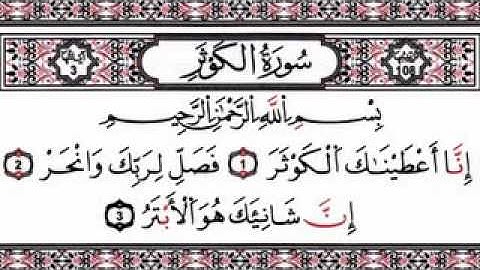 سُورَةُ الكَوثَر
108
3
بِسْمِ اللَّهِ الرَّحْمَٰنِ الرَّحِيمِ
إِنَّا أَعْطَيْنَاكَ الْكَوْثَرَ 1 فَصَلِّ لِرَبِّكَ وَانْحَرْ 2
إِنَّ شَانِئَكَ هُوَ الْأَبْتَرُ 3